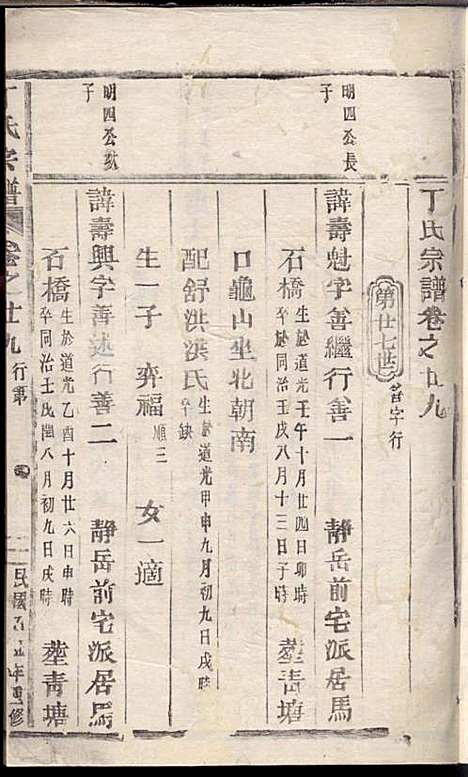 丁氏宗譜卷之廿九
第廿七世 善字行
明四公長子
諱壽魁字善繼行善一 靜岳前宅派居馬
石橋 生於道光壬午十月廿四日卯時 卒於同治壬戌八月十三日子時 塟青塘
口龜山坐北朝南
配舒洪洪氏 生於道光甲申九月初九日戌時 卒缺
生一子 弈福 順三 女一適
明四公次子
諱壽興字善述行善二 靜岳前宅派居馬
石橋 生於道光乙酉十月廿六日申時 卒同治壬戌閏八月初九日戌時 塟青塘
丁氏宗譜 卷之廿九 行第 民國 年重修